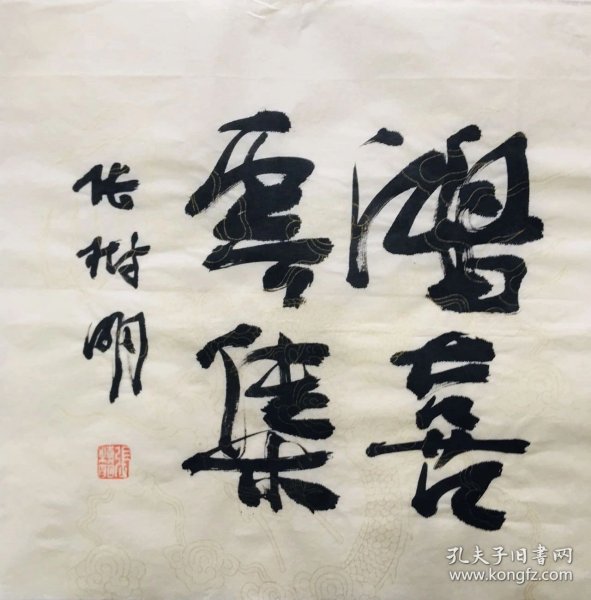 鴻喜
雲集
张树明
孔夫子旧书网
www.kongfz.com